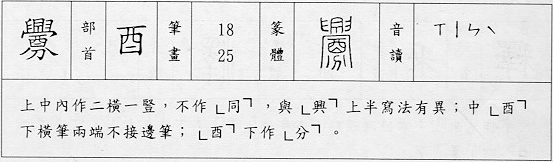 釁 部首 酉 筆畫 18 25 篆體 釁 音讀 ㄒㄧㄣˋ
上中內作二橫一豎,不作「同」,與「興」上半寫法有異;中「酉」
下橫筆兩端不接邊筆;「酉」下作「分」。